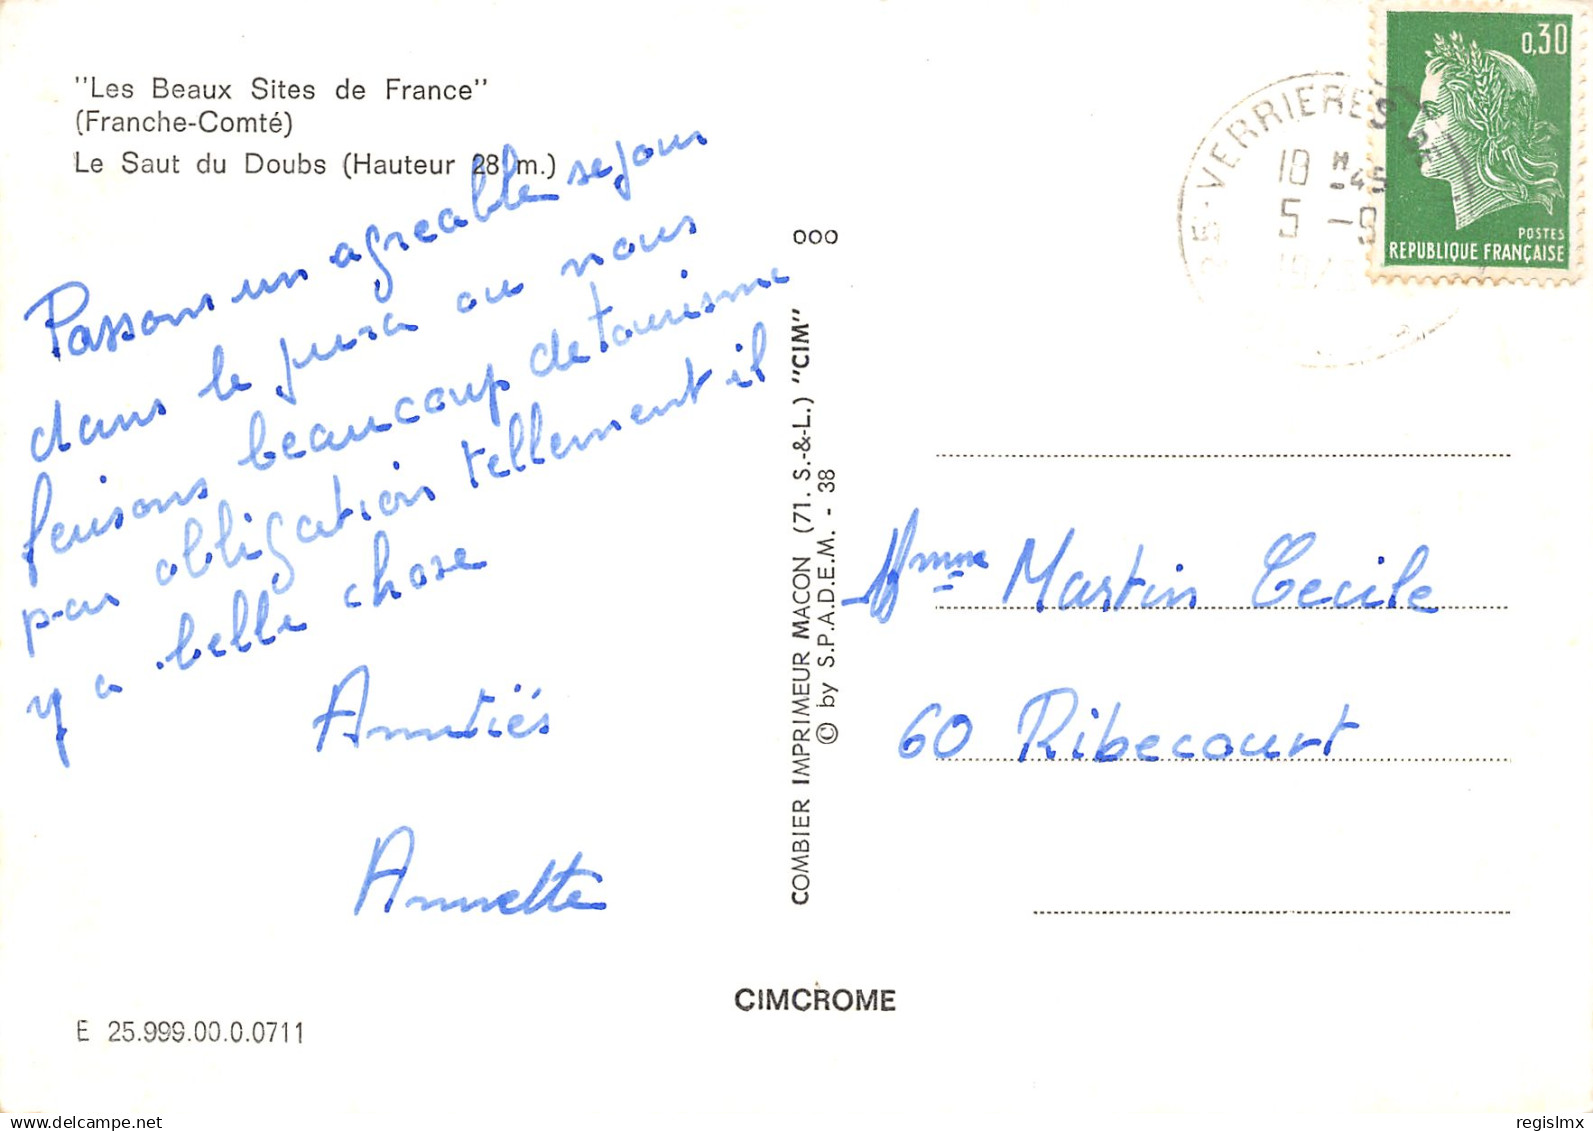 "Les Beaux Sites de France"
(Franche-Comté)
Le Saut du Doubs (Hauteur 28 m.)
Passons un agreable sejour
dans le jura ou nous
feuisons beaucoup de tourisme
par obligation tellement il
y a belle chose
Amitiés
Annette
E 25.999.00.0.0711
CIMCROME
000
COMBIER IMPRIMEUR MACON (71. S.-&-L.) "CIM"
© by S.P.A.D.E.M. - 38
25-VERRIERES DE
18 H -45
5 -9
0,30
POSTES
REPUBLIQUE FRANÇAISE
Mme Martin Cecile
60 Ribecourt
delcampe.net
regislmx